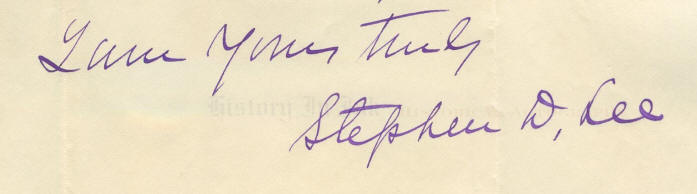 I am Yours truly
Stephen D. Lee
History In Ink